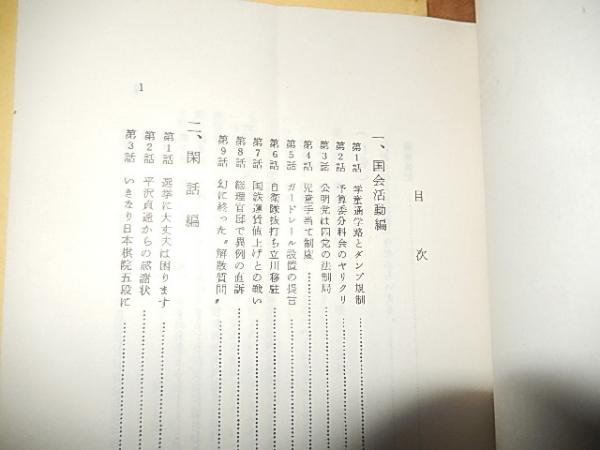 目次
一、国会活動編
第1話 学童通学路とダンプ規制
第2話 予算委分科会のヤリクリ
第3話 公明党は四党の法制局
第4話 児童手当て制度
第5話 ガードレール設置の提言
第6話 自衛隊抜打ち立川移駐
第7話 国鉄運賃値上げとの戦い
第8話 総理官邸で異例の直訴
第9話 幻に終った〝解散質問〟
二、閑話編
第1話 選挙に大丈夫は困ります
第2話 平沢貞通からの感謝状
第3話 いきなり日本棋院五段に
1